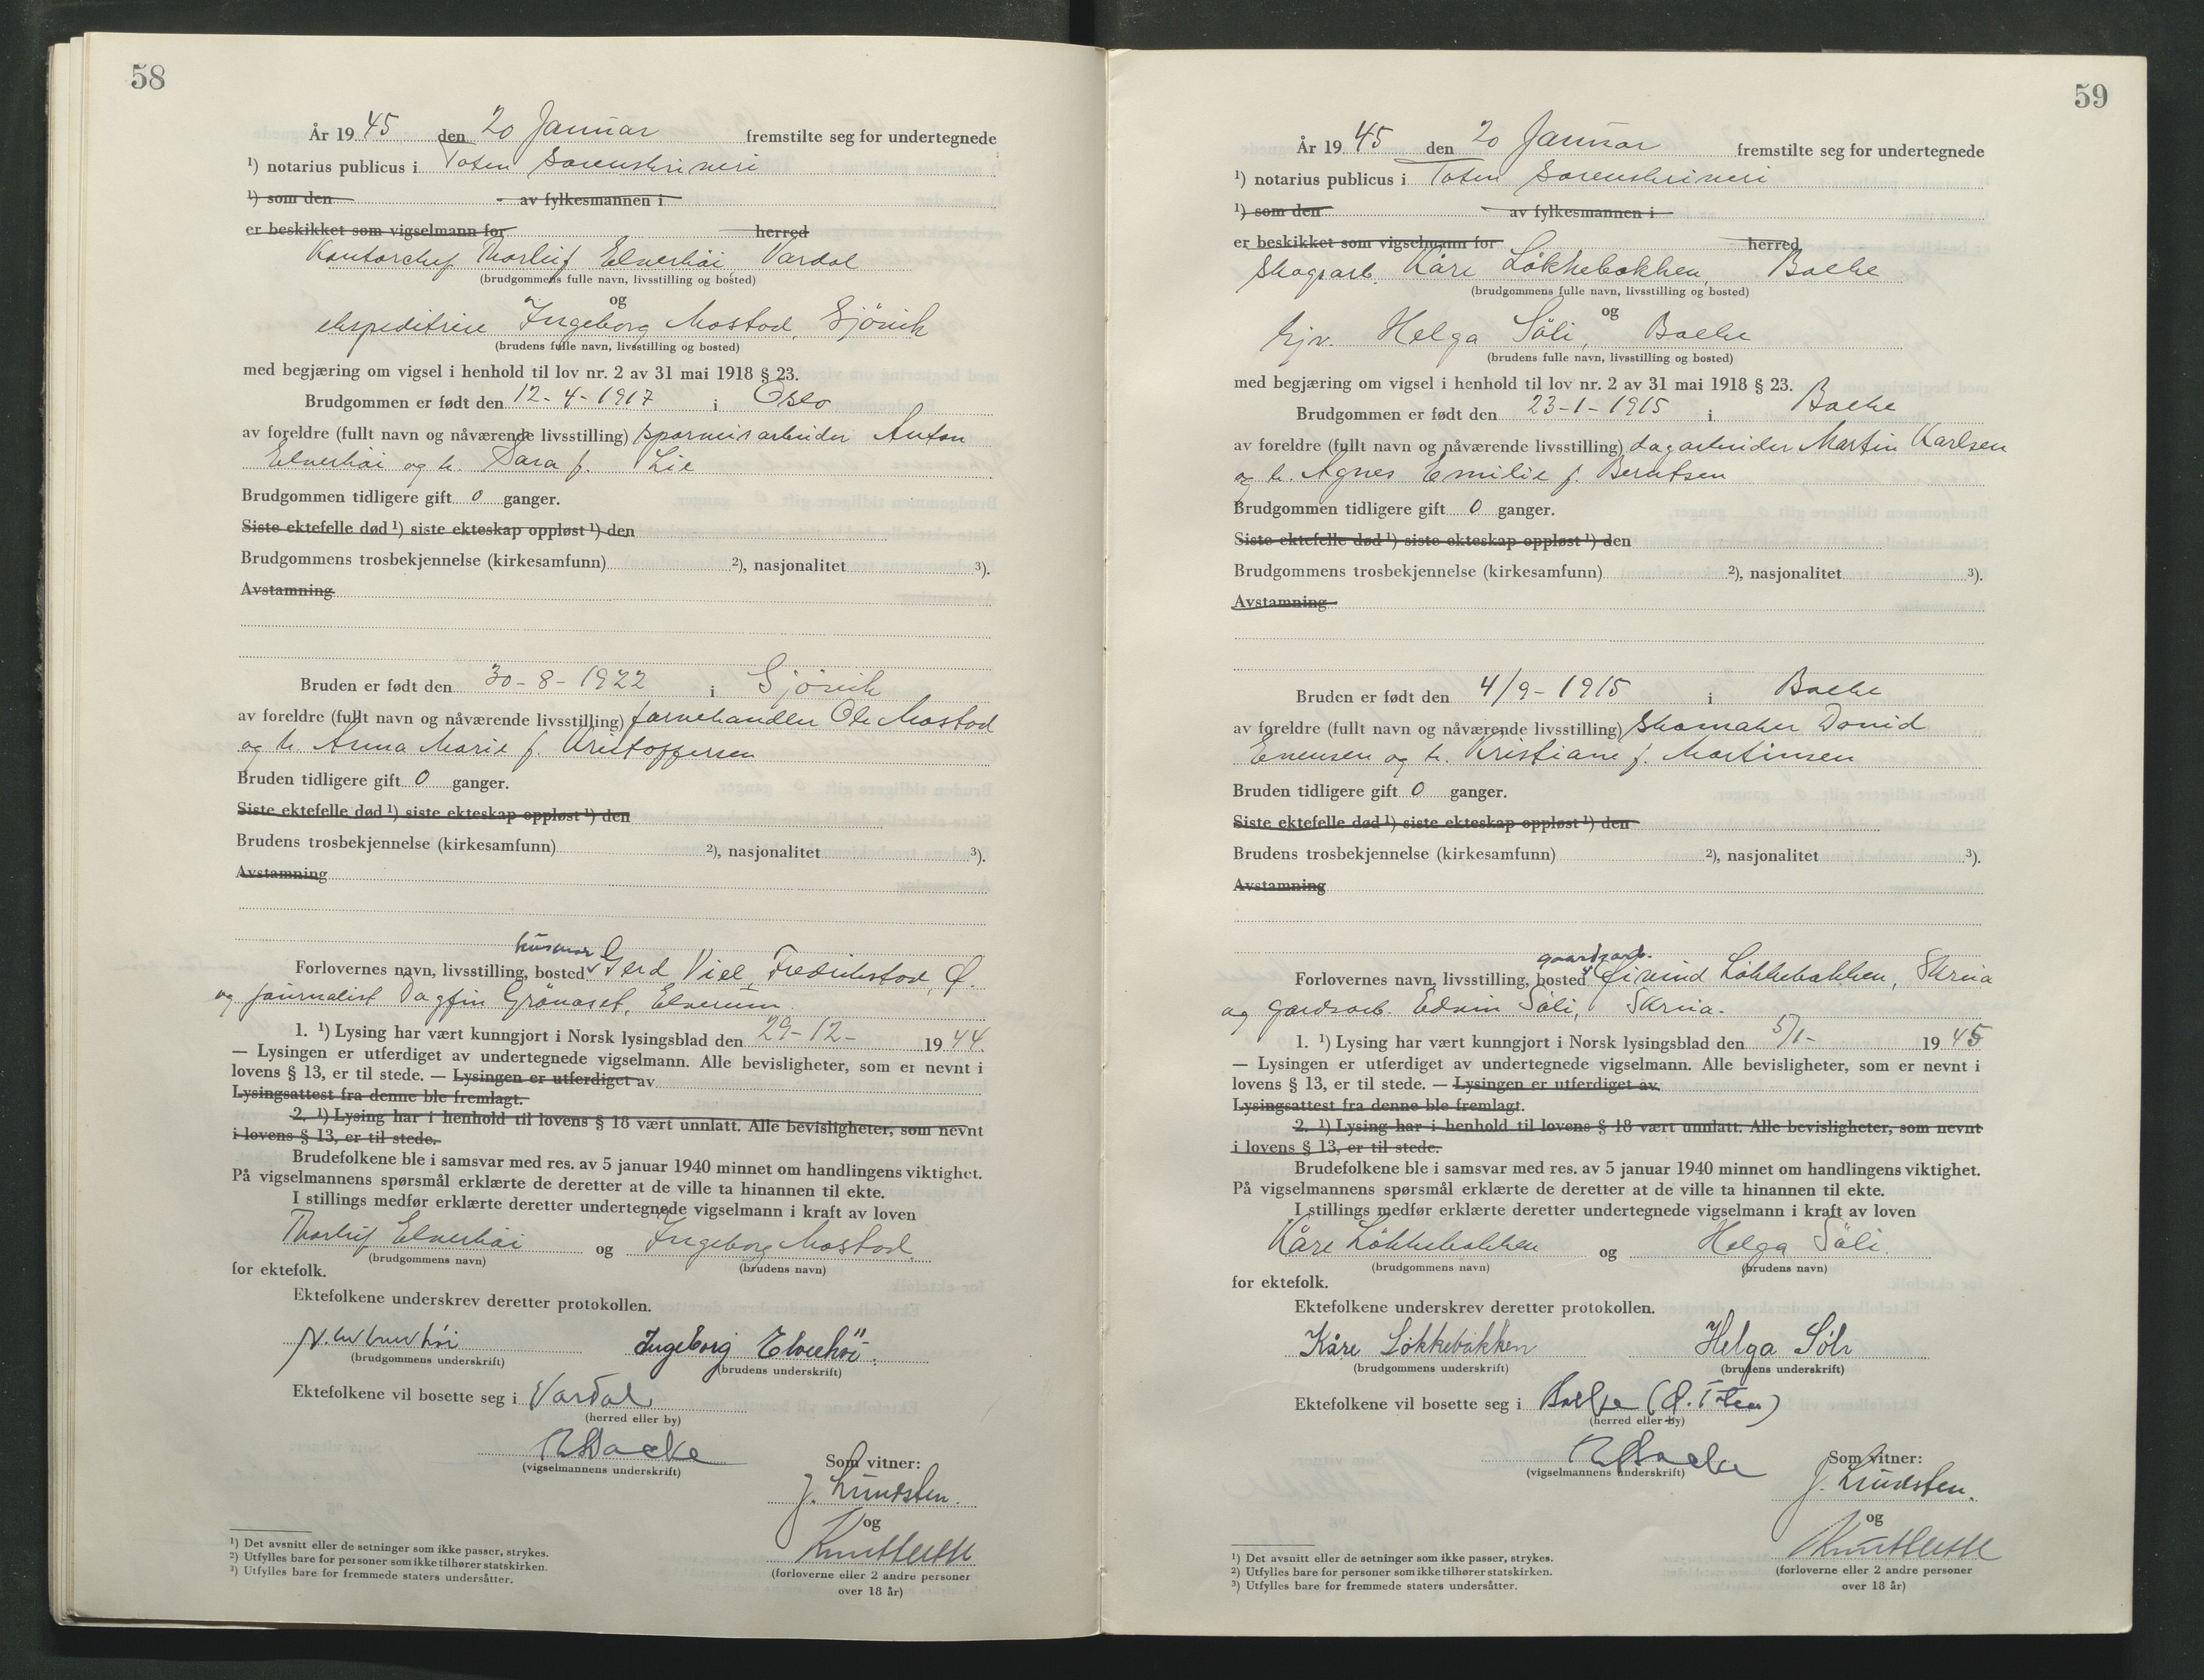 58
År 19 45 den 20 Januar fremstilte seg for undertegnede
¹) notarius publicus i Toten Sorenskriveri
¹) som den av fylkesmannen i
er beskikket som vigselmann for herred
Kontorchef Thorleif Elverhöi, Vardal
(brudgommens fulle navn, livsstilling og bosted)
og
ekspeditrise Ingeborg Mostad, Gjövik
(brudens fulle navn, livsstilling og bosted)
med begjæring om vigsel i henhold til lov nr. 2 av 31 mai 1918 § 23.
Brudgommen er født den 12-4-1917 i Oslo
av foreldre (fullt navn og nåværende livsstilling) sporveisarbeider Anton
Elverhöi og h. Sara f. Lie
Brudgommen tidligere gift 0 ganger.
Siste ektefelle død ¹) siste ekteskap oppløst ¹) den
Brudgommens trosbekjennelse (kirkesamfunn) ²), nasjonalitet ³).
Avstamning
Bruden er født den 30-8-1922 i Gjövik
av foreldre (fullt navn og nåværende livsstilling) farvehandler Ole Mostad
og h. Anna Marie f. Kristoffersen
Bruden tidligere gift 0 ganger.
Siste ektefelle død ¹) siste ekteskap oppløst ¹) den
Brudens trosbekjennelse (kirkesamfunn) ²), nasjonalitet ³).
Avstamning
husmor
Forlovernes navn, livsstilling, bosted Gerd Viel, Fredrikstad, Ø.
og journalist Dagfin Grönaset, Elverum
1. ¹) Lysing har vært kunngjort i Norsk lysingsblad den 29-12- 19 44.
— Lysingen er utferdiget av undertegnede vigselmann. Alle bevisligheter, som er nevnt i
lovens § 13, er til stede. — Lysingen er utferdiget av
Lysingsattest fra denne ble fremlagt.
2. ¹) Lysing har i henhold til lovens § 18 vært unnlatt. Alle bevisligheter, som nevnt
i lovens § 13, er til stede.
Brudefolkene ble i samsvar med res. av 5 januar 1940 minnet om handlingens viktighet.
På vigselmannens spørsmål erklærte de deretter at de ville ta hinannen til ekte.
I stillings medfør erklærte deretter undertegnede vigselmann i kraft av loven
Thorleif Elverhöi og Ingeborg Mostad
(brudgommens navn) (brudens navn)
for ektefolk.
Ektefolkene underskrev deretter protokollen.
Ingeborg Elverhöi.
(brudgommens underskrift) (brudens underskrift)
Ektefolkene vil bosette seg i Vardal
(herred eller by)
(vigselmannens underskrift)
Som vitner:
J. Lundsten.
og
(forloverne eller 2 andre personer
over 18 år)
¹) Det avsnitt eller de setninger som ikke passer, strykes.
²) Utfylles bare for personer som ikke tilhører statskirken.
³) Utfylles bare for fremmede staters undersåtter.
59
År 19 45 den 20 Januar fremstilte seg for undertegnede
¹) notarius publicus i Toten Sorenskriveri
¹) som den av fylkesmannen i
er beskikket som vigselmann for herred
Skogsarb. Kåre Lökkebakken, Bælje
(brudgommens fulle navn, livsstilling og bosted)
og
hjv. Helga Söli, Bælje
(brudens fulle navn, livsstilling og bosted)
med begjæring om vigsel i henhold til lov nr. 2 av 31 mai 1918 § 23.
Brudgommen er født den 23-1-1915 i Bælje
av foreldre (fullt navn og nåværende livsstilling) dagarbeider Martin Karlsen
og h. Agnes Emilie f. Berntsen
Brudgommen tidligere gift 0 ganger.
Siste ektefelle død ¹) siste ekteskap oppløst ¹) den
Brudgommens trosbekjennelse (kirkesamfunn) ²), nasjonalitet ³).
Avstamning
Bruden er født den 4/9-1915 i Bælje
av foreldre (fullt navn og nåværende livsstilling) Skomaker David
Evensen og h. Kristiane f. Martinsen
Bruden tidligere gift 0 ganger.
Siste ektefelle død ¹) siste ekteskap oppløst ¹) den
Brudens trosbekjennelse (kirkesamfunn) ²), nasjonalitet ³).
Avstamning
gaardsarb.
Forlovernes navn, livsstilling, bosted Eivind Lökkebakken, Skreia
og gardsarb. Edvin Söli, Skreia.
1. ¹) Lysing har vært kunngjort i Norsk lysingsblad den 5/1- 19 45
— Lysingen er utferdiget av undertegnede vigselmann. Alle bevisligheter, som er nevnt i
lovens § 13, er til stede. — Lysingen er utferdiget av
Lysingsattest fra denne ble fremlagt.
2. ¹) Lysing har i henhold til lovens § 18 vært unnlatt. Alle bevisligheter, som nevnt
i lovens § 13, er til stede.
Brudefolkene ble i samsvar med res. av 5 januar 1940 minnet om handlingens viktighet.
På vigselmannens spørsmål erklærte de deretter at de ville ta hinannen til ekte.
I stillings medfør erklærte deretter undertegnede vigselmann i kraft av loven
Kåre Lökkebakken og Helga Söli.
(brudgommens navn) (brudens navn)
for ektefolk.
Ektefolkene underskrev deretter protokollen.
Kåre Lökkebakken Helga Söli
(brudgommens underskrift) (brudens underskrift)
Ektefolkene vil bosette seg i Bælje (Ø. Toten)
(herred eller by)
(vigselmannens underskrift)
Som vitner:
J. Lundsten.
og
(forloverne eller 2 andre personer
over 18 år)
¹) Det avsnitt eller de setninger som ikke passer, strykes.
²) Utfylles bare for personer som ikke tilhører statskirken.
³) Utfylles bare for fremmede staters undersåtter.